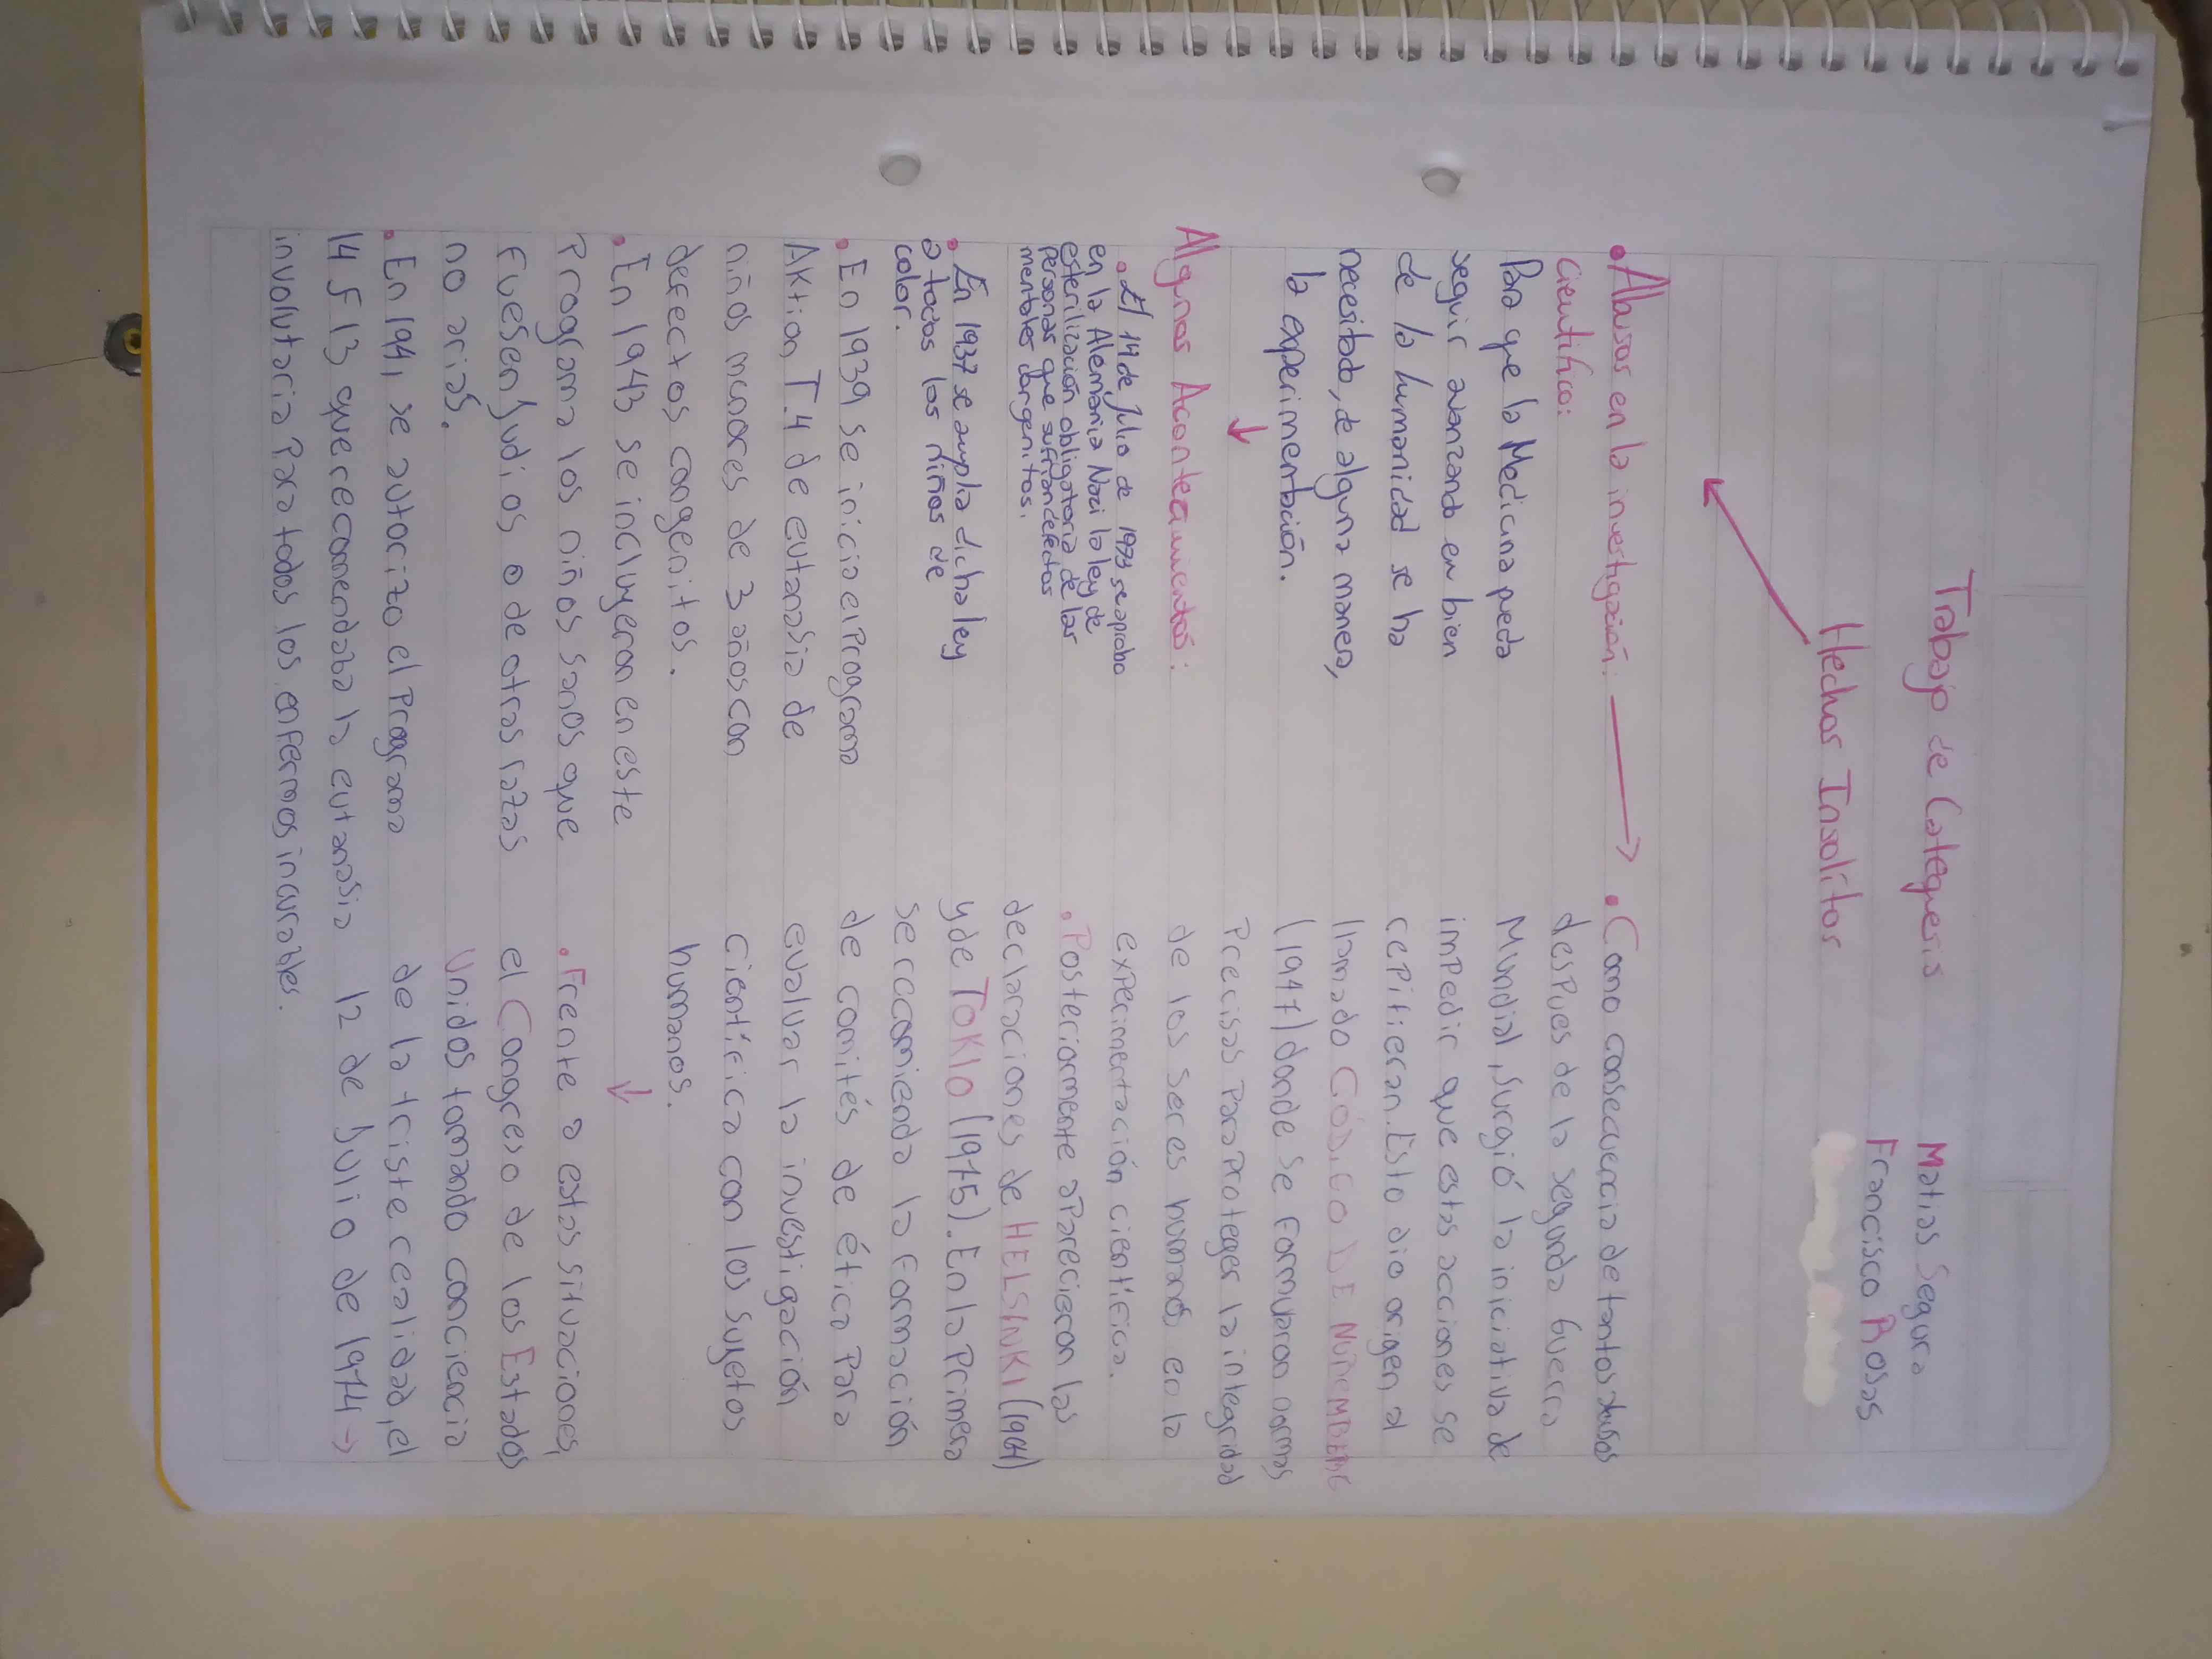 Trabajo de Catequesis
Matias Segura
Francisco Rosas
Hechos Insolitos
• Abusos en la investigación:
cientifica:
Para que la Medicina pueda
seguir avanzando en bien
de la humanidad se ha
necesitado, de alguna manera,
la experimentación.
Algunos Acontecimientos:
• El 14 de Julio de 1933 se aprobo
en la Alemania Naci la ley de
esterilización obligatoria de las
personas que sufrian defectos
mentales congenitos.
• En 1937 se amplia dicha ley
a todos los niños de
color.
• En 1939 se inicio el Programa
AKtion T.4 de eutanasia de
niños menores de 3 años con
defectos congenitos.
• En 1943 se incluyeron en este
Programa los niños sanos que
fuesen Judios o de otras razas
no arias.
• En 1941 se autorizo el Programa
14 F 13 que recomendaba la eutanasia
involutaria Para todos los enfermos incurables.
• Como consecuencia de tantos abusos
despues de la segunda Guerra
Mundial, Surgió la iniciativa de
impedir que estas acciones se
rePitieran. Esto dio origen al
llamado CÓDIGO DE NUREMBERG
(1947) donde se Formularon normas
Precisas Para Proteger la integridad
de los seres humanos en la
experimentación cientifica.
• Posteriormente aParecieron las
declaraciones de HELSINKI (1964)
y de TOKIO (1975). En la Primera
se recomienda la Formación
de comités de ética Para
evaluar la investigación
cientifica con los sujetos
humanos.
• Frente a estas situaciones,
el Congreso de los Estados
Unidos tomando conciencia
de la triste realidad, el
12 de Julio de 1974 →